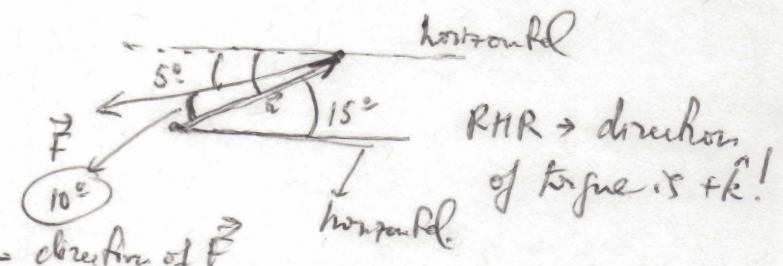 horizontal
5°
r⃗
15°
F⃗
10°
RHR → direction
of torque is +k̂!
horizontal.
direction of F⃗